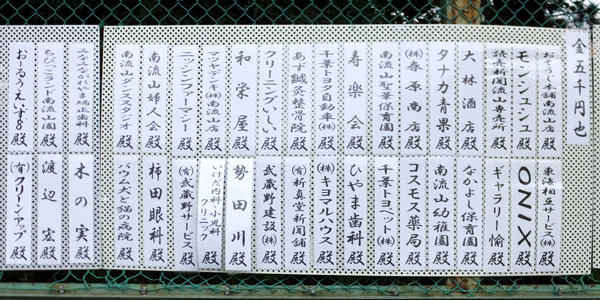 金五千円也
おそうじ本舗南流山店 殿
モンシュシュ 殿
読売新聞流山専売所 殿
大林酒店 殿
タナカ青果 殿
(株)春原商店 殿
南流山聖華保育園 殿
寿楽会 殿
千葉トヨタ自動車(株) 殿
あず鍼灸整骨院 殿
クリーニングいしい 殿
和栄屋 殿
マツヤデンキ(株)南流山店 殿
ニッシンファーマシー 殿
南流山婦人会 殿
南流山ダンススタジオ 殿
みなみながれやま矯正歯科 殿
ちびっこランド南流山園 殿
おーるうぇいず8 殿
東海相互サービス(株) 殿
ONIX 殿
ギャラリー愉 殿
なかよし保育園 殿
南流山幼稚園 殿
コスモス薬局 殿
千葉トヨペット(株) 殿
ひやま歯科 殿
(株)キヨマルハウス 殿
(有)新真堂新聞舗 殿
武蔵野建設(株) 殿
勢田川 殿
いけだ内科・小児科クリニック 殿
(有)武蔵野サービス 殿
柿田眼科 殿
バウ犬と猫の病院 殿
木の実 殿
渡辺宏 殿
(有)クリーンアップ 殿